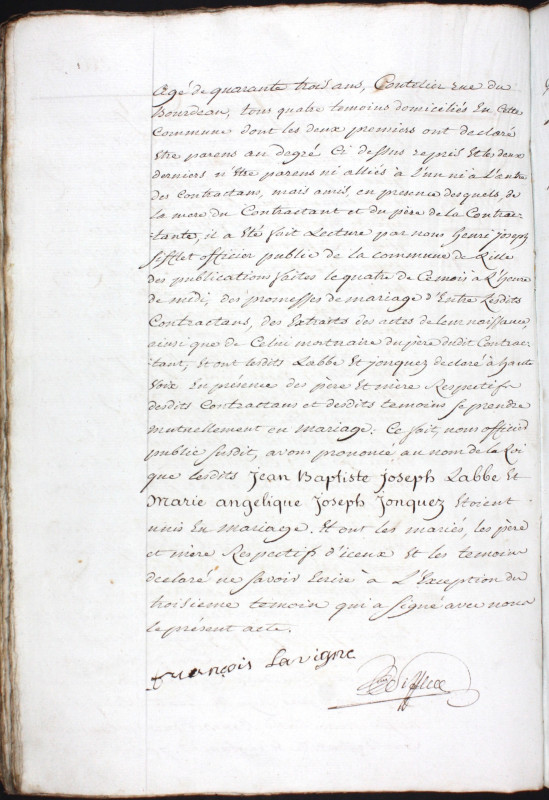 agé de quarante trois ans, Coutelier rue du
Bourdeau, tous quatre temoins domiciliés En Cette
Commune dont les deux premiers ont declaré
Etre parens au degré Ci dessus repris Et les deux
derniers n'être parens ni alliés à l'un ni à L'autre
des Contractans, mais amis, en presence desquels, de
la mere du Contractant et du père de la Contrac-
-tante, il a Eté fait Lecture par nous henri joseph
officier public de la commune de Lille
des publications faites le quatre de Ce mois à L'heure
de midi, des promesses de mariage d'Entre Lesdits
Contractans, des Extraits des actes de leur naissance,
ainsi que de Celui mortuaire du père dudit Contrac-
-tant, Et ont lesdits Labbe Et jonquez declaré à haute
voix En présence des père et mère Respectifs
desdits Contractans et desdits temoins se prendre
mutuellement en mariage: Ce fait, nous officier
public susdit, avons prononcé au nom de la Loi
que lesdits Jean Baptiste joseph Labbe Et
Marie angelique joseph Jonquez Etoient
unis En mariage. Et ont les mariés, les père
et mère Respectifs d'iceux Et les temoins
declaré ne savoir Ecrire à L'Exception du
troisieme temoin qui a signé avec nous
le présent acte.
françois Lavigne